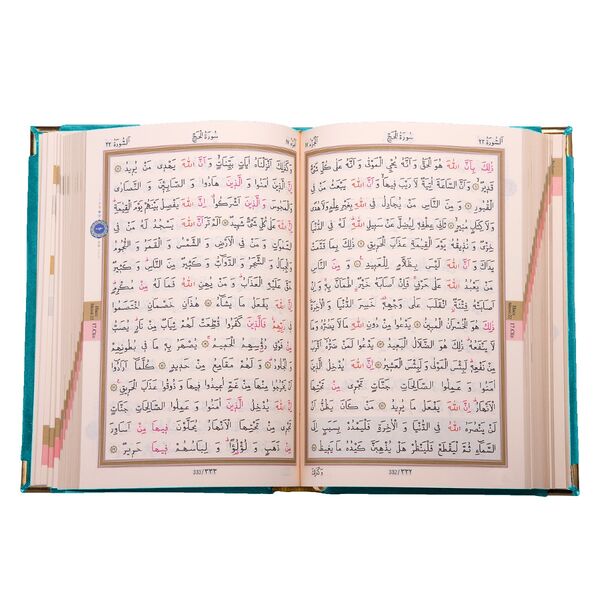 اَلسُّورَةُ ٢٢
سُورَةُ الْحَجِّ
ذٰلِكَ بِاَنَّ اللّٰهَ هُوَ الْحَقُّ وَ اَنَّهُ يُحْيِ الْمَوْتٰى وَ اَنَّهُ عَلٰى كُلِّ شَيْءٍ
قَدِيرٌ ۞ وَ اَنَّ السَّاعَةَ اٰتِيَةٌ لَا رَيْبَ فِيهَا وَ اَنَّ اللّٰهَ يَبْعَثُ مَنْ فِي
الْقُبُورِ ۞ وَ مِنَ النَّاسِ مَنْ يُجَادِلُ فِي اللّٰهِ بِغَيْرِ عِلْمٍ وَ لَا هُدًى
وَ لَا كِتَابٍ مُنِيرٍ ۞ ثَانِيَ عِطْفِهِ لِيُضِلَّ عَنْ سَبِيلِ اللّٰهِ لَهُ فِي الدُّنْيَا
خِزْيٌ وَ نُذِيقُهُ يَوْمَ الْقِيٰمَةِ عَذَابَ الْحَرِيقِ ۞ ذٰلِكَ بِمَا قَدَّمَتْ
يَدَاكَ وَ اَنَّ اللّٰهَ لَيْسَ بِظَلَّامٍ لِلْعَبِيدِ ۞ وَ مِنَ النَّاسِ مَنْ يَعْبُدُ
اللّٰهَ عَلٰى حَرْفٍ فَاِنْ اَصَابَهُ خَيْرٌ اطْمَاَنَّ بِهِ وَ اِنْ
اَصَابَتْهُ فِتْنَةٌ انْقَلَبَ عَلٰى وَجْهِهِ خَسِرَ الدُّنْيَا وَ الْاٰخِرَةَ
ذٰلِكَ هُوَ الْخُسْرَانُ الْمُبِينُ ۞ يَدْعُوا مِنْ دُونِ اللّٰهِ مَا لَا يَضُرُّهُ وَ مَا
لَا يَنْفَعُهُ ذٰلِكَ هُوَ الضَّلَالُ الْبَعِيدُ ۞ يَدْعُوا لَمَنْ ضَرُّهُ اَقْرَبُ
مِنْ نَفْعِهِ لَبِئْسَ الْمَوْلٰى وَ لَبِئْسَ الْعَشِيرُ ۞ اِنَّ اللّٰهَ يُدْخِلُ
الَّذِينَ اٰمَنُوا وَ عَمِلُوا الصَّالِحَاتِ جَنَّاتٍ تَجْرِي مِنْ تَحْتِهَا
الْاَنْهَارُ اِنَّ اللّٰهَ يَفْعَلُ مَا يُرِيدُ ۞ مَنْ كَانَ يَظُنُّ اَنْ لَنْ
يَنْصُرَهُ اللّٰهُ فِي الدُّنْيَا وَ الْاٰخِرَةِ فَلْيَمْدُدْ بِسَبَبٍ اِلَى
السَّمَاءِ ثُمَّ لْيَقْطَعْ فَلْيَنْظُرْ هَلْ يُذْهِبَنَّ كَيْدُهُ مَا يَغِيظُ
وَ كَذٰلِكَ
332/٣٣٢
17.Cüz
سُورَةُ الْحَجِّ
اَلسُّورَةُ ٢٢
وَ كَذٰلِكَ اَنْزَلْنَاهُ اٰيَاتٍ بَيِّنَاتٍ وَ اَنَّ اللّٰهَ يَهْدِي مَنْ يُرِيدُ ۞
اِنَّ الَّذِينَ اٰمَنُوا وَ الَّذِينَ هَادُوا وَ الصَّابِئِينَ وَ النَّصَارٰى
وَ الْمَجُوسَ وَ الَّذِينَ اَشْرَكُوا اِنَّ اللّٰهَ يَفْصِلُ بَيْنَهُمْ يَوْمَ الْقِيٰمَةِ
اِنَّ اللّٰهَ عَلٰى كُلِّ شَيْءٍ شَهِيدٌ ۞ اَلَمْ تَرَ اَنَّ اللّٰهَ يَسْجُدُ لَهُ مَنْ فِي
السَّمٰوَاتِ وَ مَنْ فِي الْاَرْضِ وَ الشَّمْسُ وَ الْقَمَرُ وَ النُّجُومُ
وَ الْجِبَالُ وَ الشَّجَرُ وَ الدَّوَابُّ وَ كَثِيرٌ مِنَ النَّاسِ وَ كَثِيرٌ
حَقَّ عَلَيْهِ الْعَذَابُ وَ مَنْ يُهِنِ اللّٰهُ فَمَا لَهُ مِنْ مُكْرِمٍ
اِنَّ اللّٰهَ يَفْعَلُ مَا يَشَاءُ ۞ هٰذَانِ خَصْمَانِ اخْتَصَمُوا
فِي رَبِّهِمْ فَالَّذِينَ كَفَرُوا قُطِّعَتْ لَهُمْ ثِيَابٌ مِنْ نَارٍ يُصَبُّ
مِنْ فَوْقِ رُؤُسِهِمُ الْحَمِيمُ ۞ يُصْهَرُ بِهِ مَا فِي بُطُونِهِمْ
وَ الْجُلُودُ ۞ وَ لَهُمْ مَقَامِعُ مِنْ حَدِيدٍ ۞ كُلَّمَا اَرَادُوا
اَنْ يَخْرُجُوا مِنْهَا مِنْ غَمٍّ اُعِيدُوا فِيهَا وَ ذُوقُوا عَذَابَ الْحَرِيقِ ۞
اِنَّ اللّٰهَ يُدْخِلُ الَّذِينَ اٰمَنُوا وَ عَمِلُوا الصَّالِحَاتِ جَنَّاتٍ
تَجْرِي مِنْ تَحْتِهَا الْاَنْهَارُ يُحَلَّوْنَ فِيهَا مِنْ اَسَاوِرَ
مِنْ ذَهَبٍ وَ لُؤْلُؤًا وَ لِبَاسُهُمْ فِيهَا حَرِيرٌ ۞
333/٣٣٣
17.Cüz